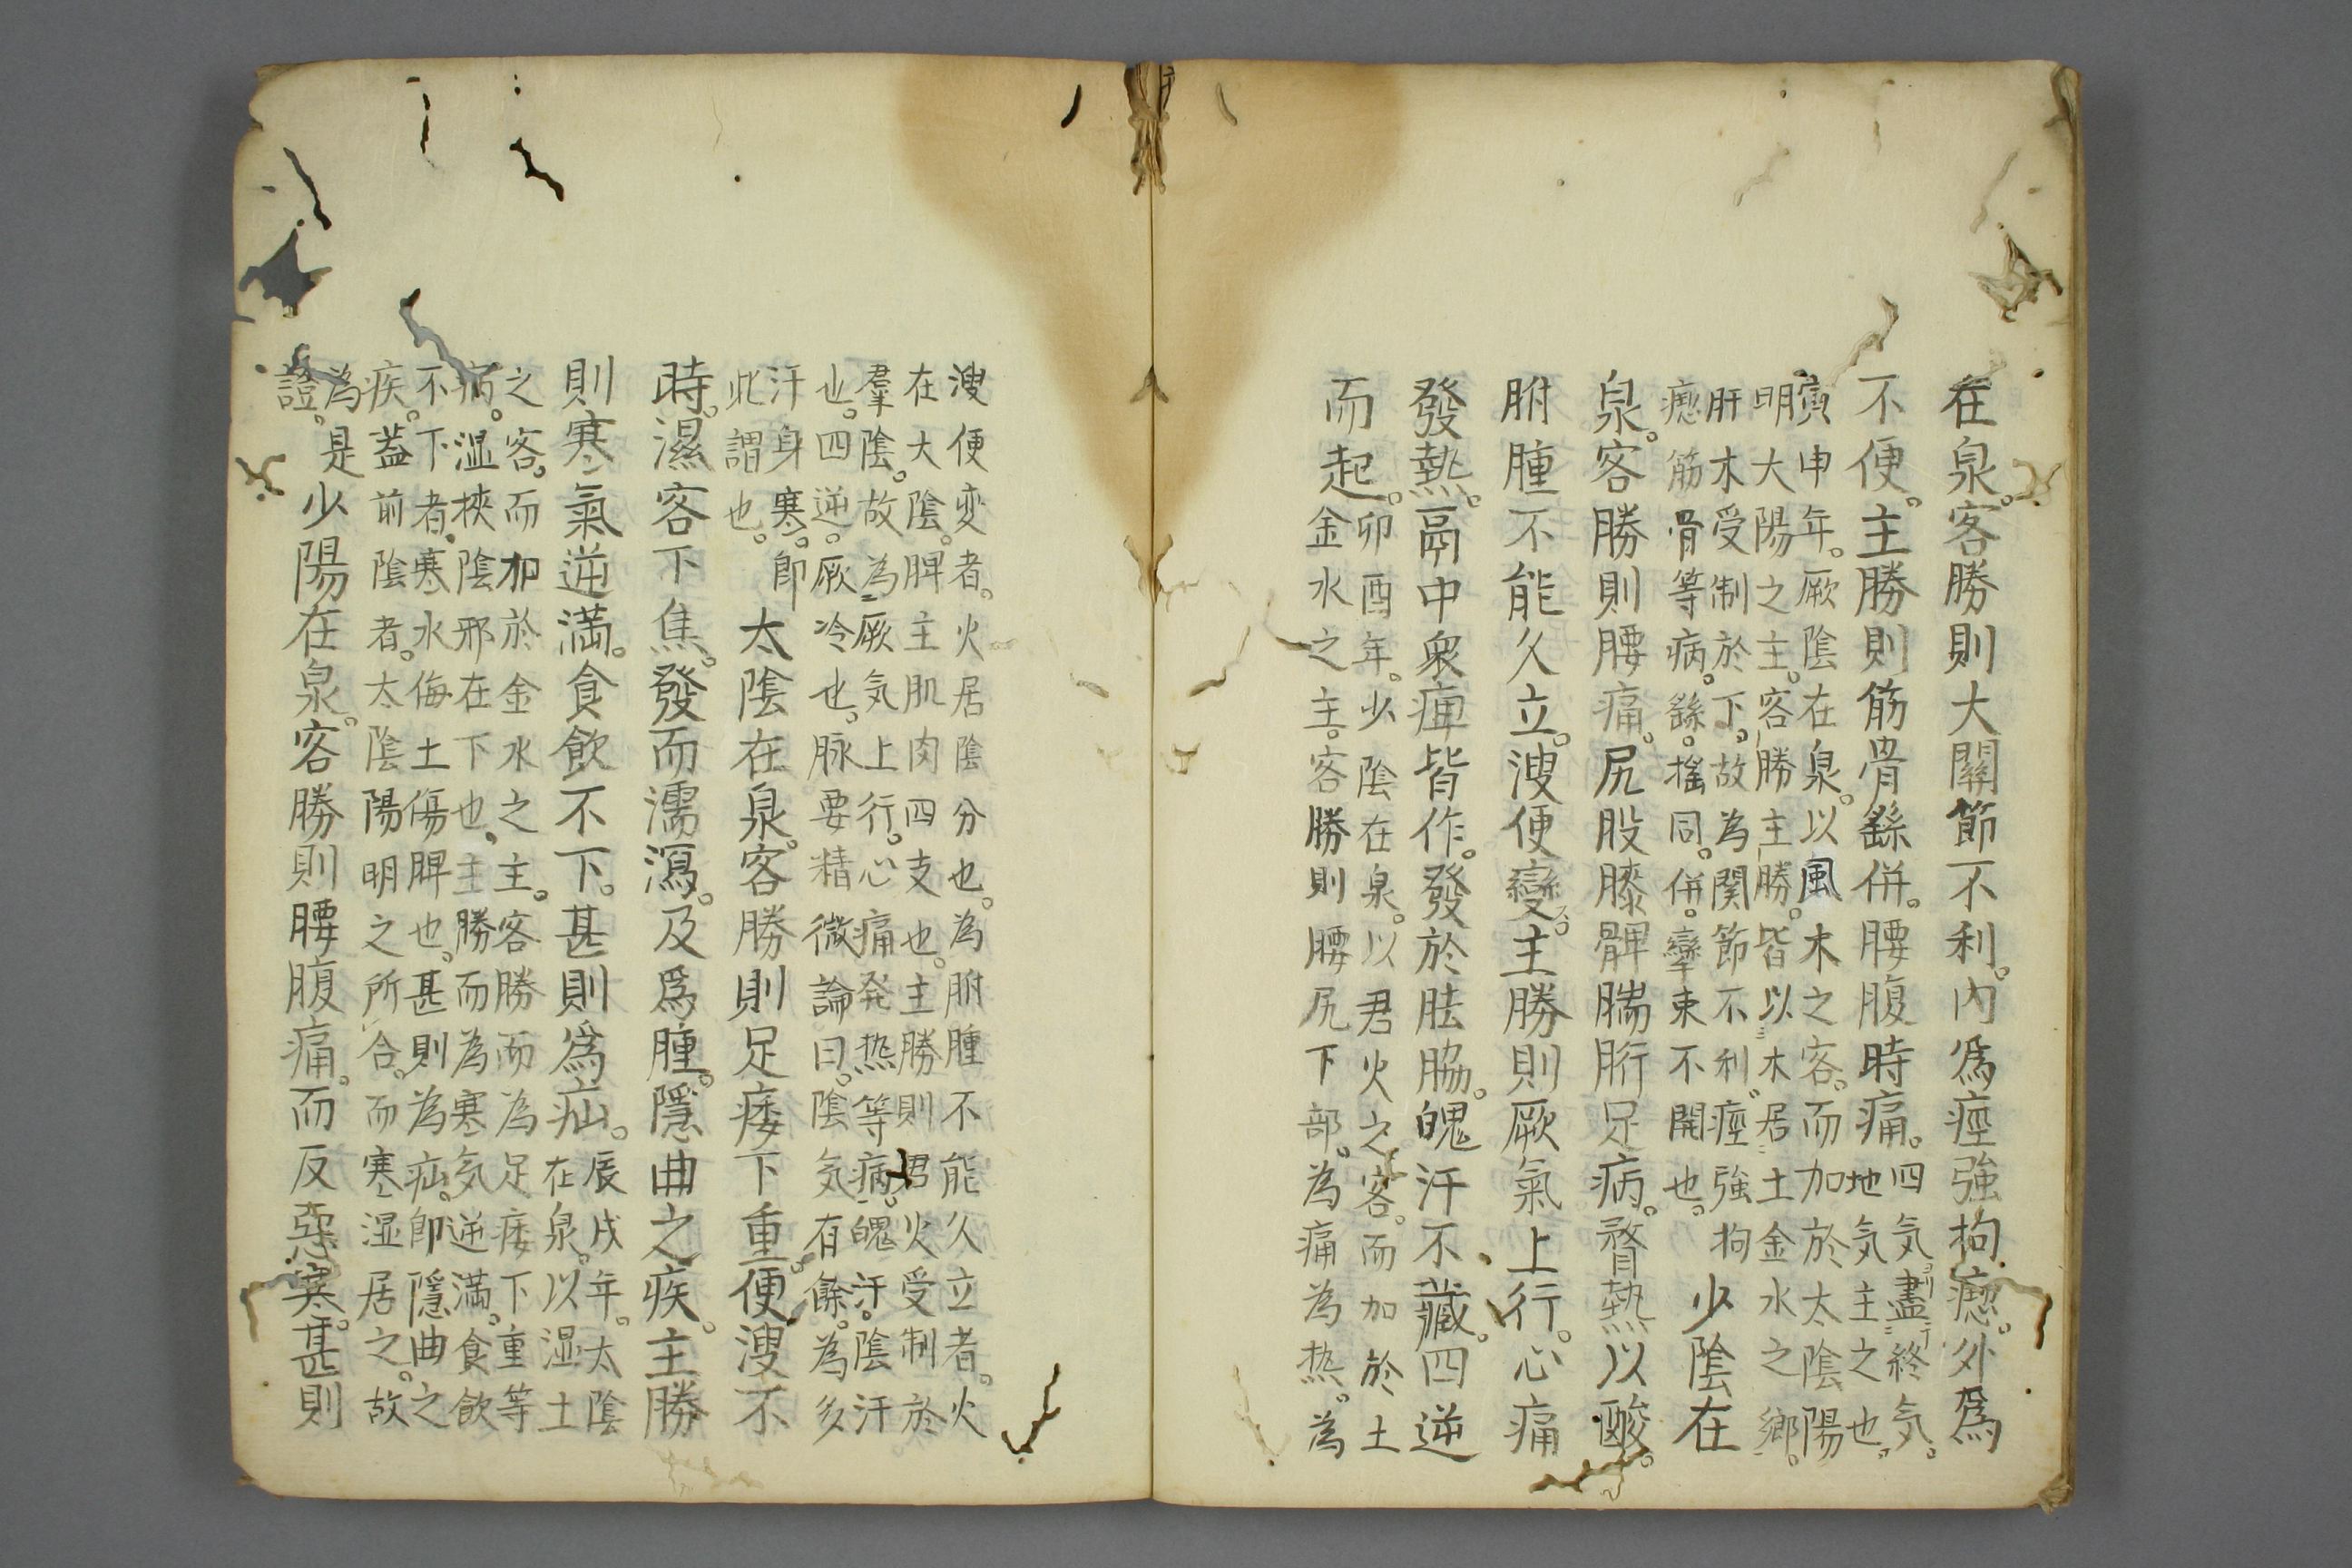 在泉。客勝則大關節不利。内爲痙強拘瘛。外爲
不便。主勝則筋骨繇併。腰腹時痛。
四気盡終気。
地気主之也。
寅申年。厥陰在泉。以風木之客。而加於太陰陽
明大陽之主。客勝主勝。皆以木居土金水之鄉。
肝木受制於下。故為関節不利。痙強拘
瘛筋骨等病。繇。搖同。併。攣束不開也。
少陰在
泉。客勝則腰痛。尻股膝髀腨胻足病。瞀熱以酸。
胕腫不能久立。溲便變。主勝則厥氣上行。心痛
發熱。鬲中衆痺皆作。發於胠脇。魄汗不藏。四逆
而起。
卯酉年。少陰在泉。以君火之客。而加於土
金水之主。客勝則腰尻下部。為痛為热。為
溲便変者。火居陰分也。為胕腫不能久立者。火
在大陰。脾主肌肉四支也。主勝則君火受制於
羣陰。故為厥気上行。心痛発热等病。魄汗。陰汗
也。四逆。厥冷也。脉要精微論曰。陰気有餘。為多
汗身寒。即
此謂也。
太陰在泉。客勝則足痿下重。便溲不
時。濕客下焦。發而濡瀉。及爲腫。隱曲之疾。主勝
則寒氣逆満。食飲不下。甚則爲疝。
辰戌年。太陰
在泉。以湿土
之客。而加於金水之主。客勝而為足痿下重等
病。湿挾陰邪在下也。主勝而為寒気逆満。食飲
不下者。寒水侮土傷脾也。甚則為疝。即隱曲之
疾。蓋前陰者。太陰陽明之所合。而寒湿居之。故
為是
證。
少陽在泉。客勝則腰腹痛。而反惡寒。甚則